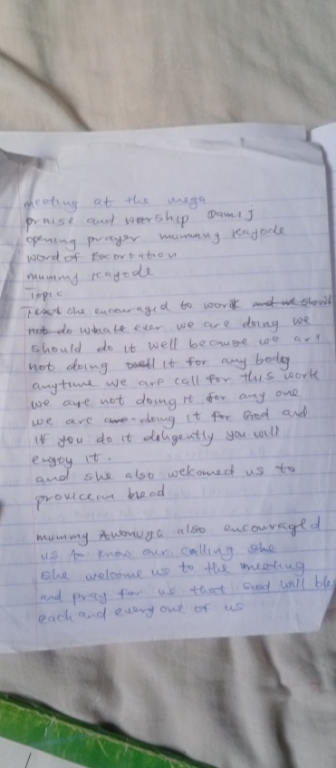 meeting at the mega
praise and worship Dami J
opening prayer mummy Kayode
word of Exortation
mummy Kayode
Topic
Text she encouraged to work and we should
not do whate ever we are doing we
should do it well because we are
not doing well it for any body
anytime we are call for this work
we are not doing it for any one
we are are doing it for God and
if you do it diligently you will
enjoy it.
and she also welcomed us to
head
mummy also encouraged
us to know our calling she
she welcome us to the meeting
and pray for us that God will ble
each and every one of us